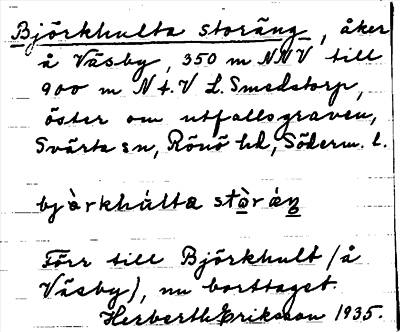 Björkhulta storäng, åker
å Väsby, 350 m NNV till
900 m N t.V L. Smedstorp,
öster om utfallsgraven,
Svärta sn, Rönö hd, Söderm. l.
bjàrkhúlta stòráŋ
Förr till Björkhult (å
Väsby), nu borttaget.
Herberth Eriksson 1935.